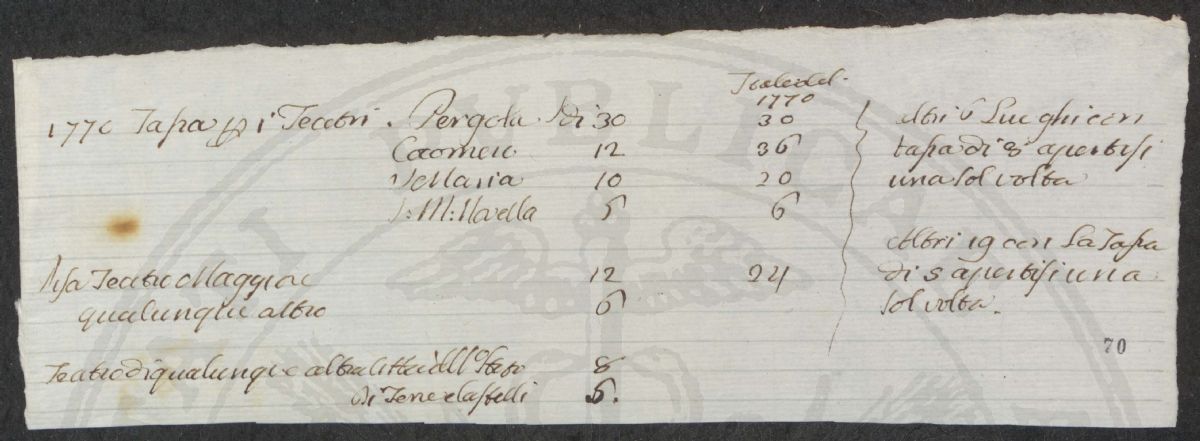 Totale del
1770
1770 Tassa p i Teatri. Pergola di 30 30
Cocomero 12 36
S. Maria 10 20
S: M: Novella 6 6
altri 6 Lueghi con
tassa di 8 apertisi
una sol volta
Pisa Teatro Maggior 12 24
qualunque altro 6
Altri 19 con La Tassa
di s apertisi una
sol volta.
70
Teatro di qualunque altra Citta dello Stato 8
di Terre e Castelli 6.
PUBLICA